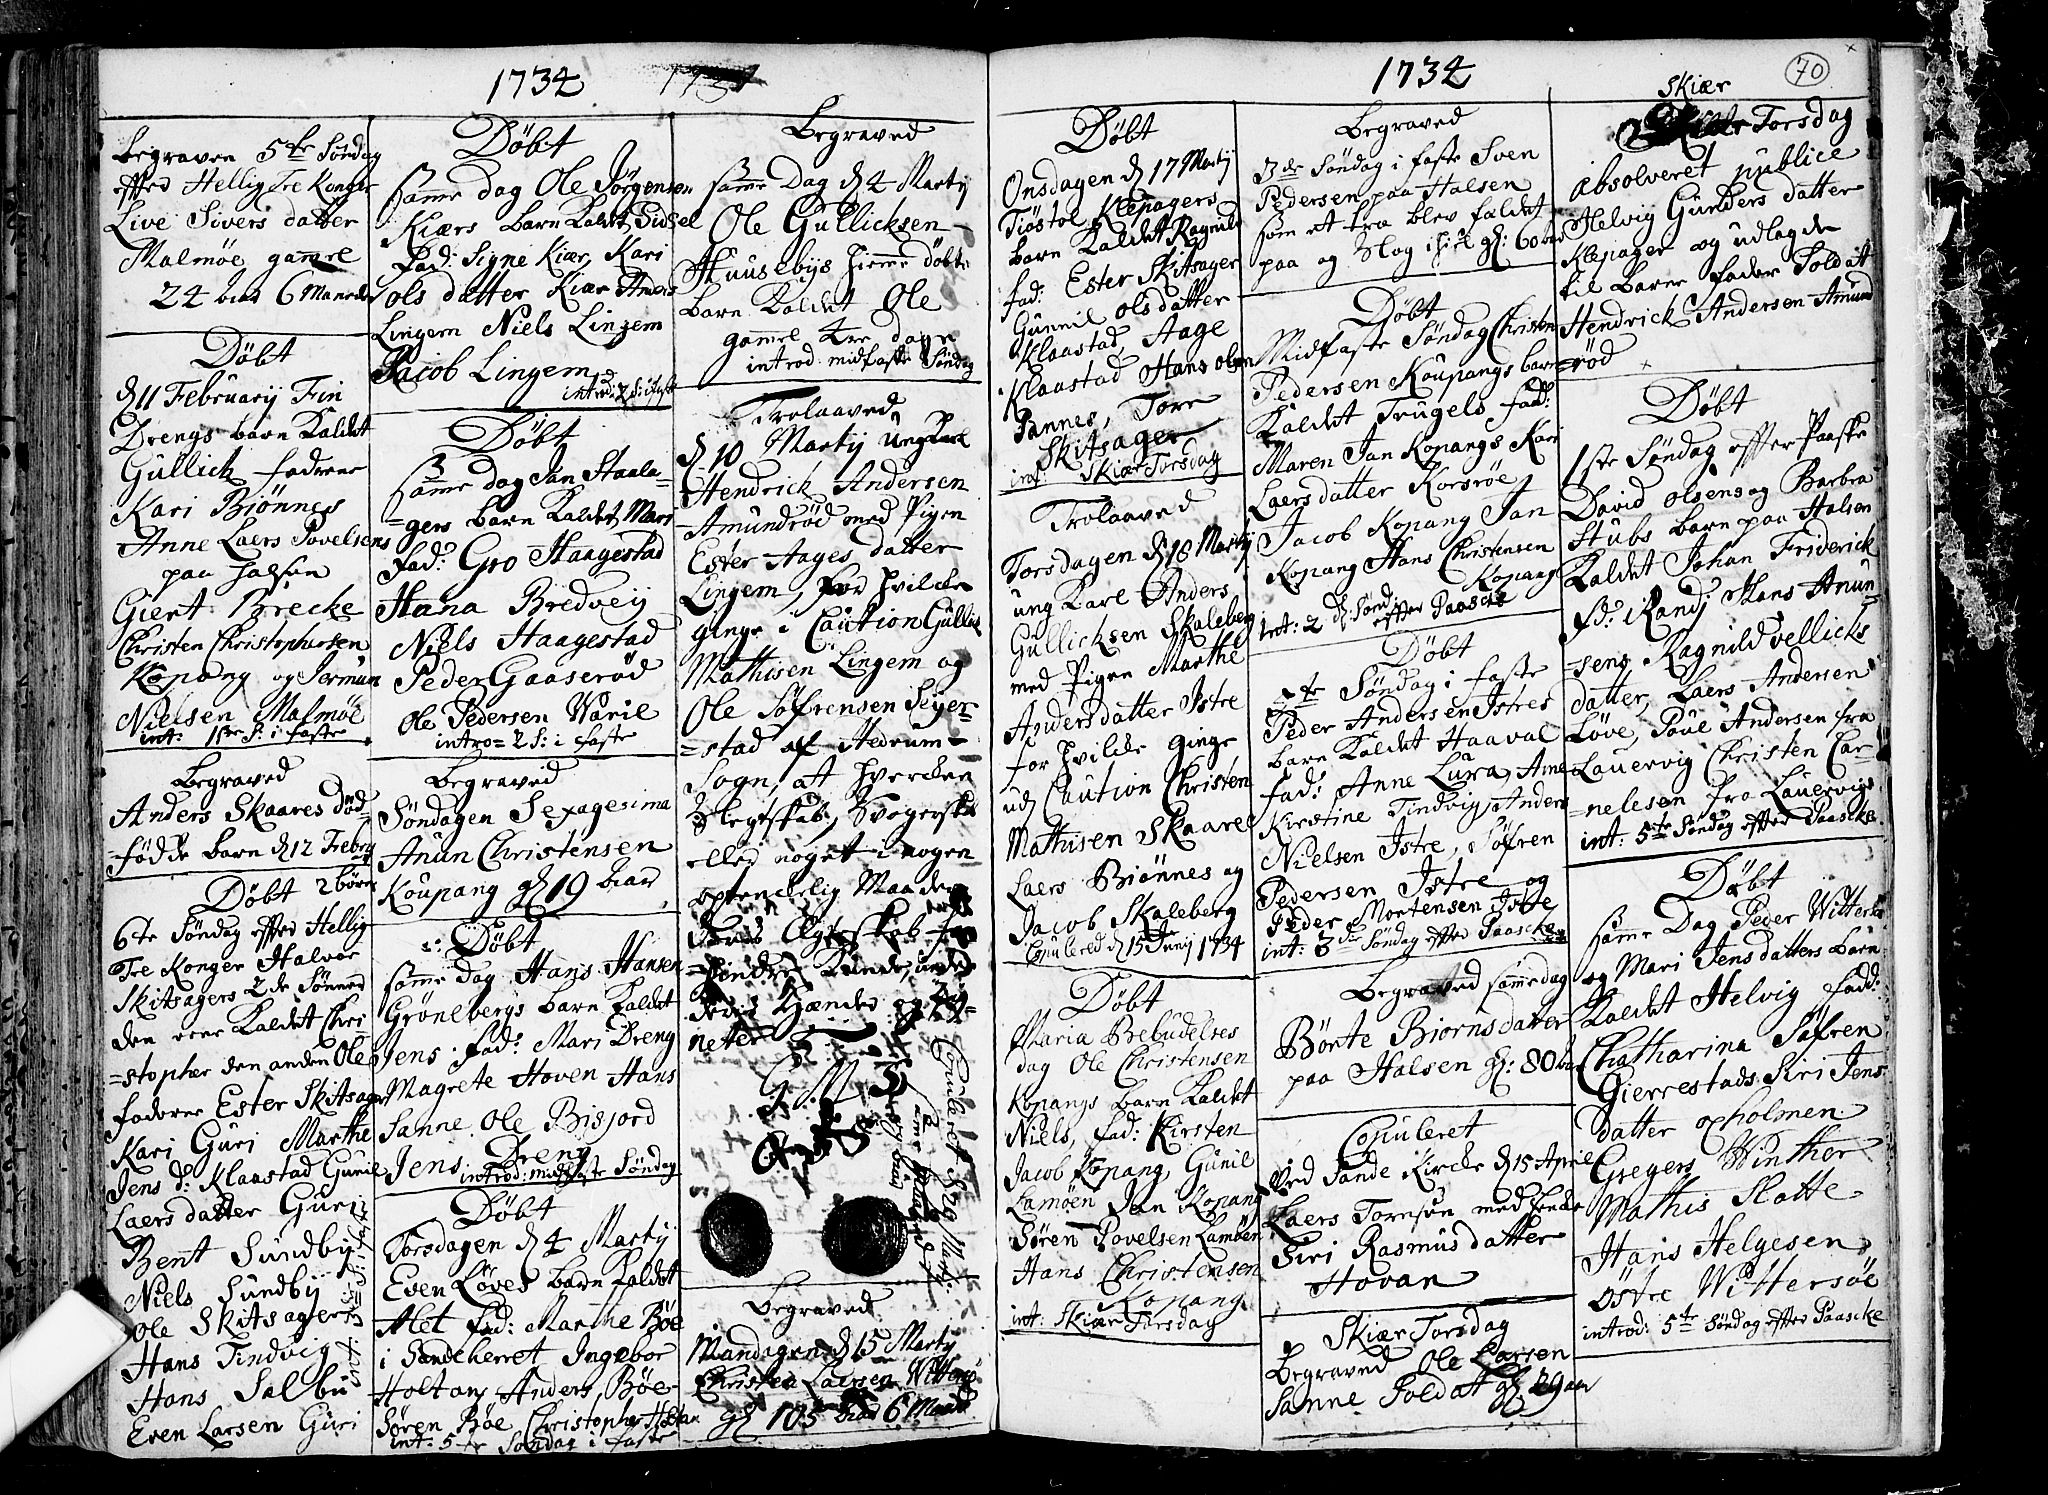 1734
Begraven 5te Søndag
effter Hellig Tre Konger
Live Sivers datter
Malmøe gammel
24 6 Maneder
Døbt
d 11 February Fin
Drengs barn kaldet
Gullich fadrene
Kari Biønnes
Anne Laers Povelsens
paa halsen
Giert Brecke
Christen Christophersen
Kopang og Jermun
Nielsen Malmøe
int: 1ste S: i faste
Begraved
Anders Skaares død-
=fødde barn d 12 Febry
Døbt 2 børn
6te Søndag effter Hellig
Tre Konger Halvor
Skitsagers 2de Sønner
den eene kaldet Chri-
=stopher den anden Ole
fadrene Ester Skitsager
Kari Guri Marthe
Jens d: Klaastad Gunil
Laers datter Guri
Bent Sundby
Niels Sundby
Ole Skitsagers
Hans Tindvig
Hans Salbu
Even Larsen Guri
Døbt
samme dag Ole Jørgensen
Kiærs barn kaldet Sidsel
Fad: Signe Kiær, Kari
ols datter Kiær Anders
Lingem Niels Lingem
Jacob Lingem
introd: 2 S: i faste
Døbt
samme dag Jan Haala-
=gers barn kaldet Mari
fad: Gro Haagestad
Hana Bredveij
Niels Haagestad
Peder Gaaserød
Ole Pedersen Warie
intro= 2 S: i faste
Begraved
Søndagen Sexagesima
Anun Christensen
Koupang gl 19
Døbt
samme dag Hans Hansen
Grønebergs barn kaldet
Jens. fad: Mari Dreng
Magrete Hoven Hans
Sanne Ole Bisjord
Jens Dreng
introd: midfaste Søndag
Døbt
Torsdagen d 4 Marty
Even Løves barn kaldet
Alet fad: Marthe Bøe
i Sandeherret Ingebor
Holtan Anders Bøe
Søren Bøe Christopher Holtan
int: 5te Søndag i faste
Begraved
samme Dag d 4 Marty
Ole Gullicksen
Huusebys hieme døbte
barn kaldet Ole
gammel dage
introd: midfaste Søndag
Trolaaved
d 10 Marty ungkarl
Hendrick Andersen
Amundrød med Pigen
Ester Aages datter
Lingem, for hvilcke
ginge i Caution Gullich
Mathisen Lingem og
Ole Søfrensen Seyer-
=stad af Hedrum
Sogn, at hvercken
Slegtskab, Svogerskab
eller noget i nogen
optenckelig Maade
deris Ægteskab
hindre kunde, under
deris Hænder og Sig-
neter
G M S
Copuleret d 29 Juny
Begraved
Mandagen d 15 Marty
Christen Laersen Wittersøe
gl 105 6 Maaned
1734
70
Døbt
Onsdagen d 17 Marty
Tiøstol Klepagers
barn kaldet Ragnild
fad: Ester Skitsager
Gunnil olsdatter
Klaastad, Aage
Klaastad Hans olsen
Pannes, Tore
Skitsager
int: Skiær Torsdag
Trolaaved
Torsdagen d 18 Marty
ung karl Anders
Gullicksen Skaleberg
med Pigen Marthe
Andersdatter Istre
for hvilcke ginge
ud Caution Christen
Mathisen Skaare
Laers Biønnes og
Jacob Skaleberg
Copulered d 15 Junij 1734
Døbt
Maria Bebudelses
dag Ole Christensen
Kopangs barn kaldet
Niels, fad: Kirsten
Jacob Kopang, Gunil
Lamøen Jan Kopang
Søren Povelsen Lamøen
Hans Christensen
Kopang
int: Skiær Torsdag
Begraved
3de Søndag i faste Sven
Pedersen paa Halsen
som et træ blev fældet
paa og slog ihiel gl: 60
Døbt
Midfaste Søndag Christen
Pedersen Koupangs barn
kaldet Trugels fad:
Maren Jan Kopangs Kari
Laersdatter Korsrøe
Jacob Kopang Jan
Kopang Hans Christensen
Kopang
int: 2 d: Sønd: effter Paasche
Døbt
5te Søndag i faste
Peder Andersen Istres
barn kaldet Haaval
fad: Anne Lura, Anne
Kirstine Tindvig, Anders
Nielsen Istre, Søfren
Pedersen Istre og
Peder Mortensen Istre
int: 3de Søndag effter Paasche
Begraved samme dag
Børte Biørnsdatter
paa Halsen gl: 80
Copuleret
ved Sande Kircke d 15 April
Laers Tornsøn med
Siri Rasmusdatter
Hovan
Skiær Torsdag
Begraved Ole Larsen
Sanne Soldat gl 29 aar
Skiær
Torsdag
absolveret publice
Helvig Gunders datter
Klepager og udlagde
til barne fader Soldat
Hendrick Andersen Amund
=rød
Døbt
1ste Søndag effter Paaske
David olsens og Barbra
Stubs barn paa Halsen
kaldet Johan Friderick
fd: Rand: Hans Anun-
=sens Ragnild vellicks
datter, Laers Andersen
Løve, Poul Andersen fra
Lauervig Christen Cor-
=nelesen fra Lauervig
int: 5te Søndag effter Paasche
Døbt
samme Dag Peder Wittersøe
og Mari Jensdatters barn
kaldet Helvig fadd:
Chatharina Søfren
Gierrestads Siri Jens
datter oxholmen
Gregers Winther
Mathis Slotte
Hans Helgesen
Østre Wittersøe
introd: 5te Søndag effter Paascke